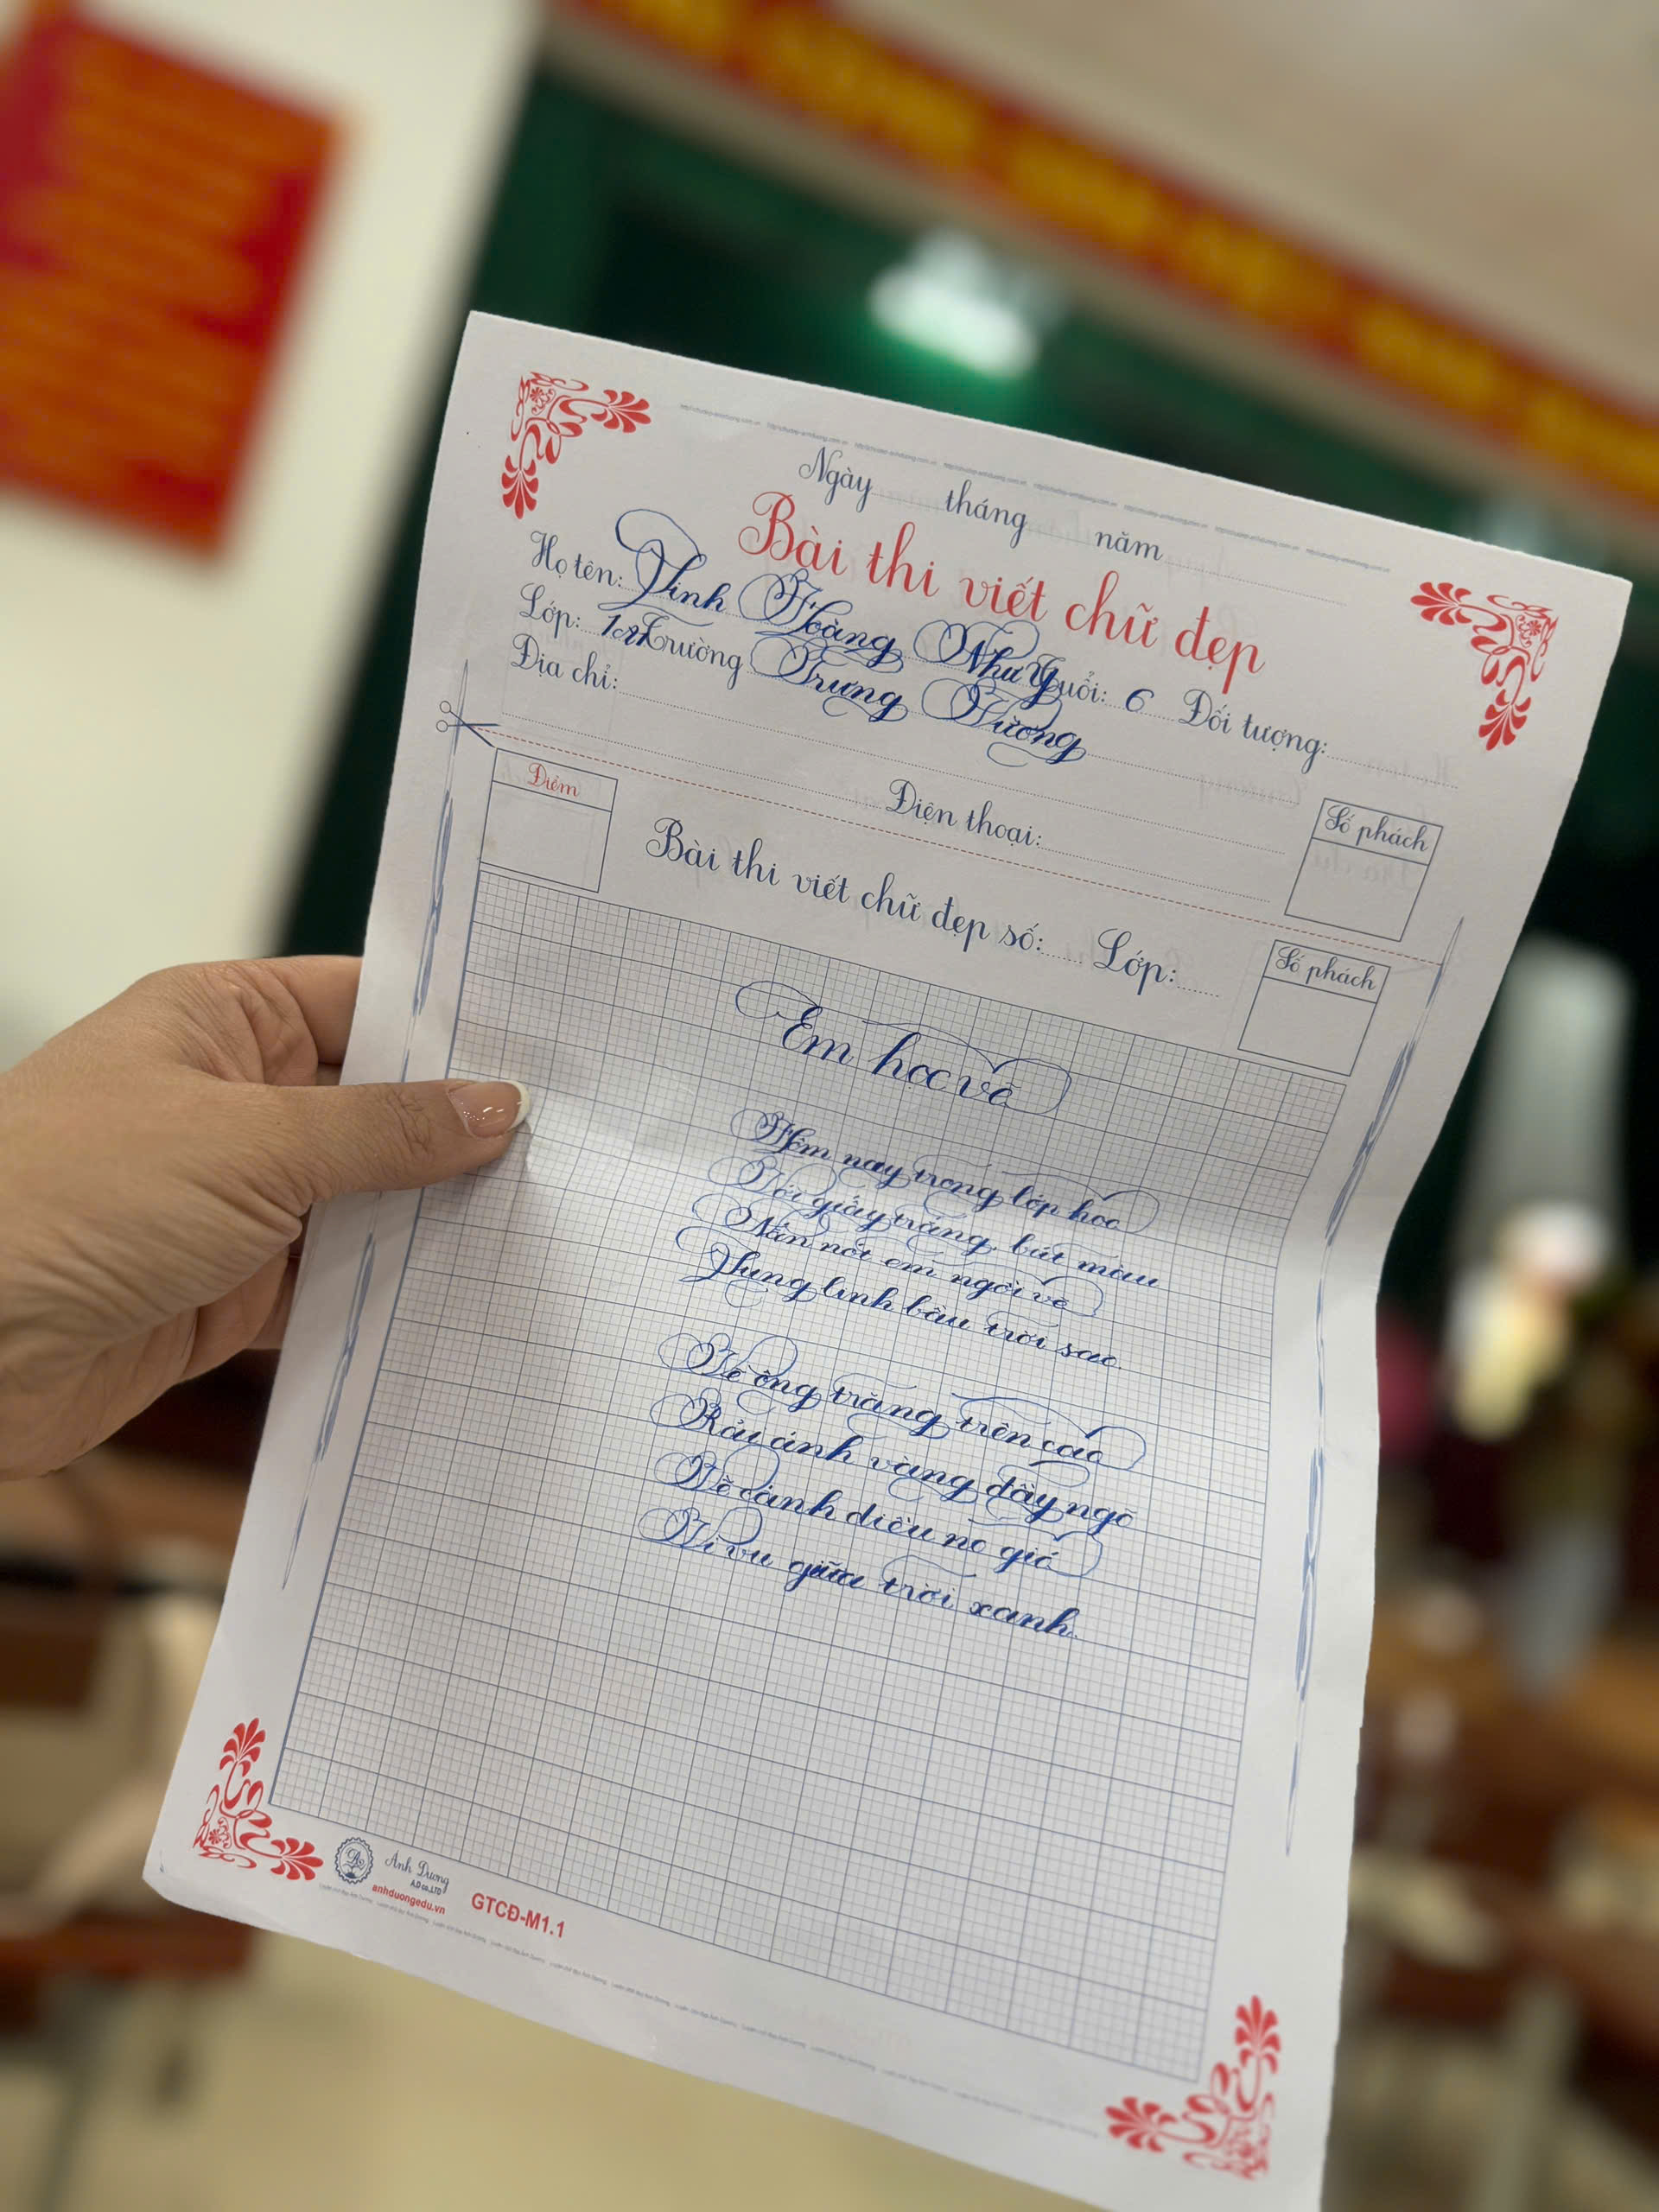 Ngày tháng năm
Bài thi viết chữ đẹp
Họ tên: Đinh Hoàng Như Ý Tuổi: 6 Đối tượng:
Lớp: Trường Trưng Vương
Địa chỉ:
Điện thoại:
Số phách
Điểm
Bài thi viết chữ đẹp số: Lớp:
Số phách
Em học vẽ
Hôm nay trong lớp học
Với giấy trắng, bút màu
Nắn nót em ngồi vẽ
Lung linh bầu trời sao.
Vẽ ông trăng trên cao
Rải ánh vàng đầy ngõ
Vẽ cánh diều no gió
Vi vu giữa trời xanh.
Ánh Dương
A.D co.,LTD
anhduongedu.vn
GTCĐ-M1.1